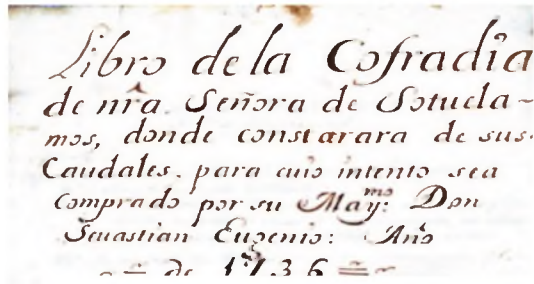 Libro de la Cofradîa
de nr̃a. Señora de Sotuela~
mos, donde constarara de sus
Caudales. para cuio intento sea
Comprado por su May.mo: Don
Seuastian Eugenio: Año
de 1736